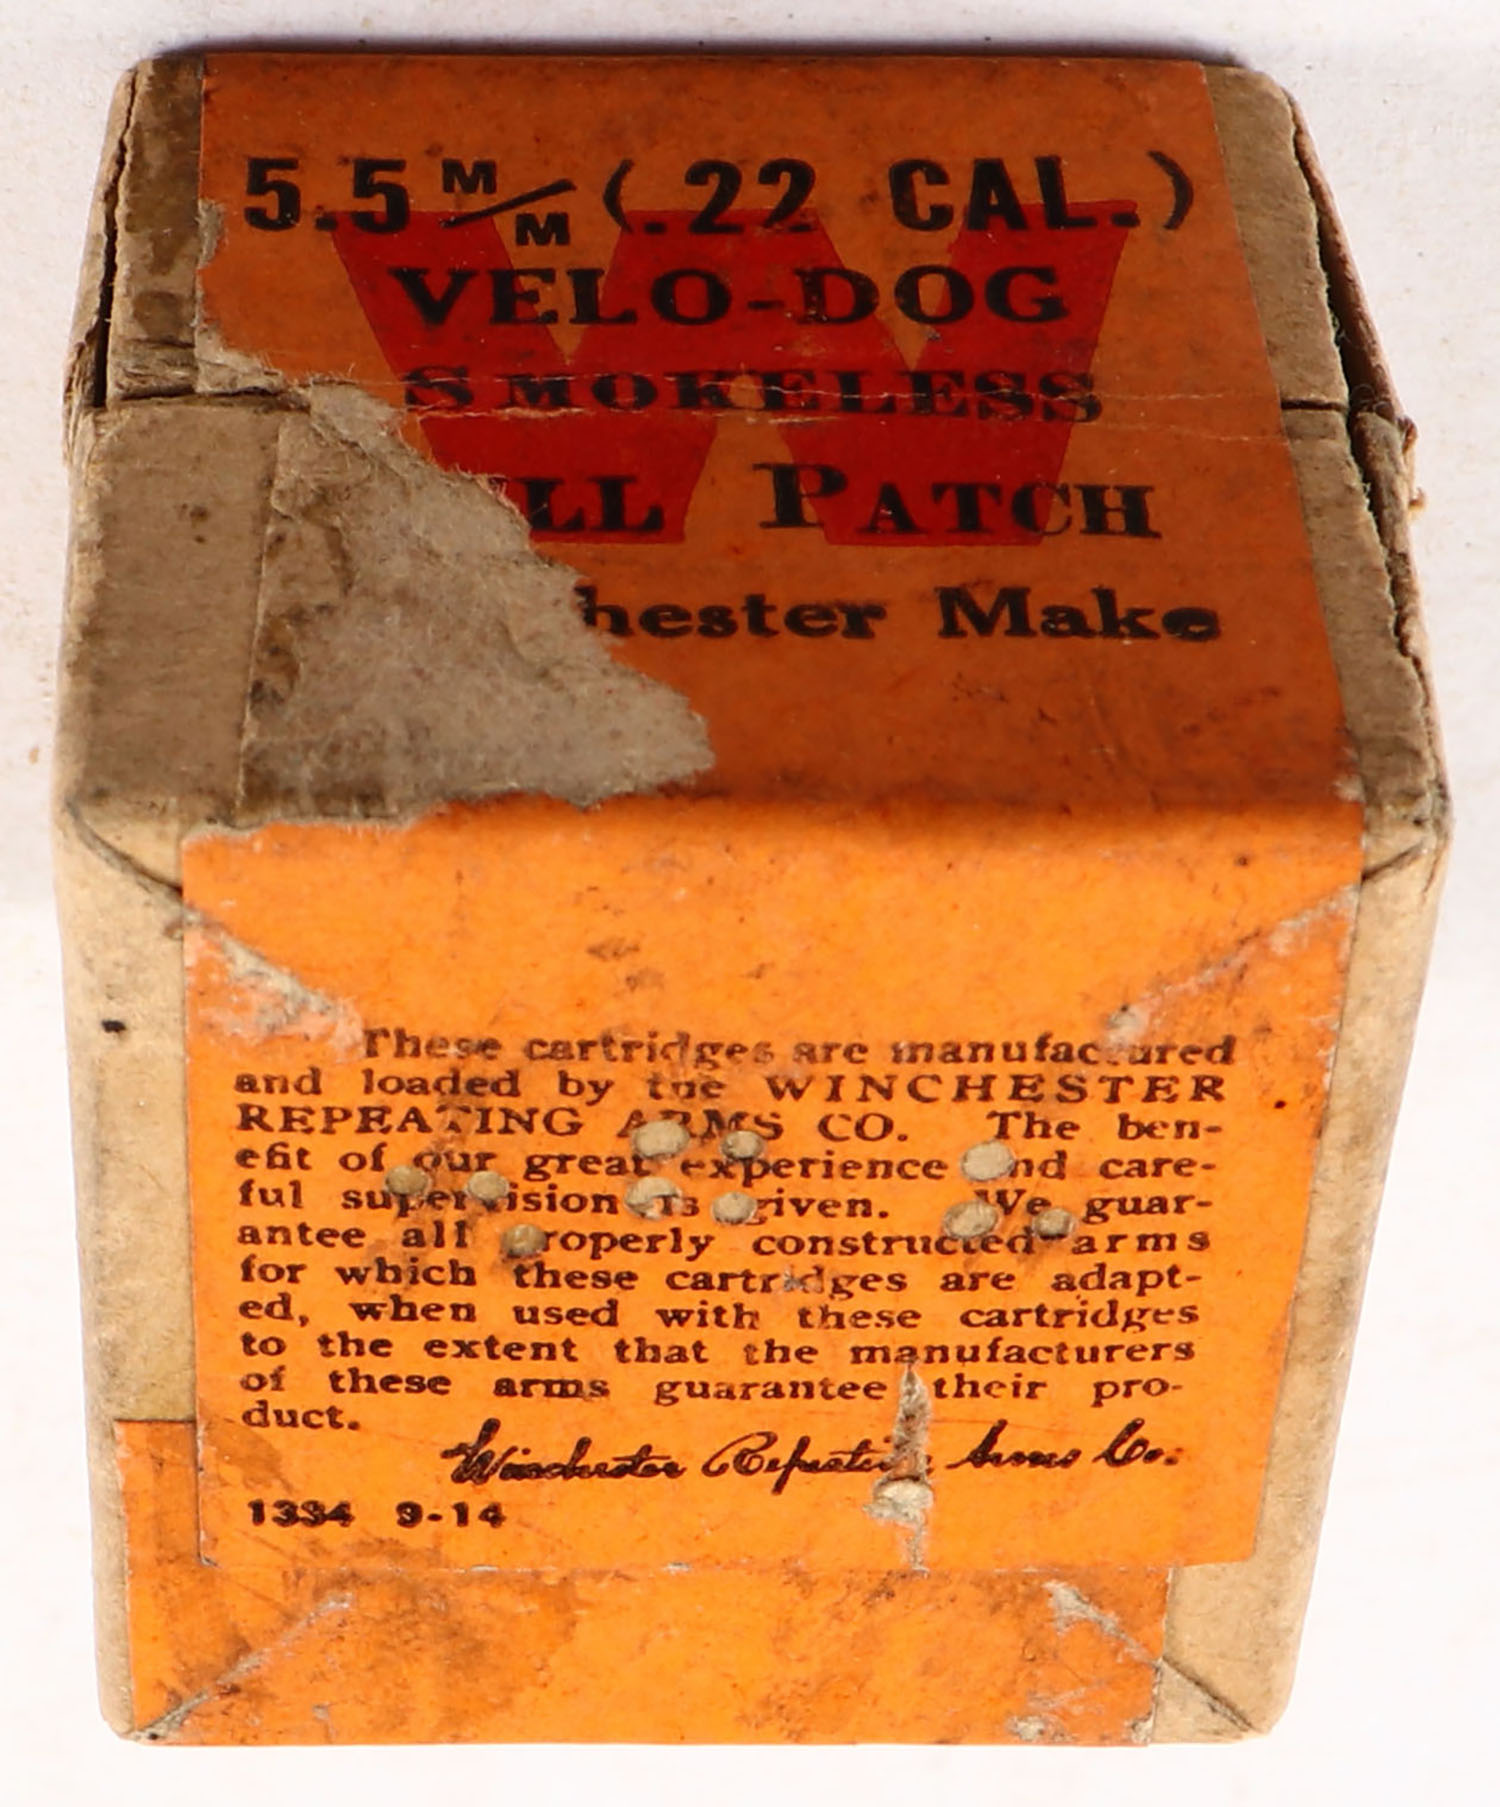 5.5 M/M (.22 CAL.)
VELO-DOG
SMOKELESS
LL PATCH
hester Make
W
These cartridges are manufactured
and loaded by the WINCHESTER
REPEATING ARMS CO. The ben-
efit of our great experience and care-
ful supervision is given. We guar-
antee all properly constructed arms
for which these cartridges are adapt-
ed, when used with these cartridges
to the extent that the manufacturers
of these arms guarantee their pro-
duct.
Winchester Repeating Arms Co.
1334 9-14